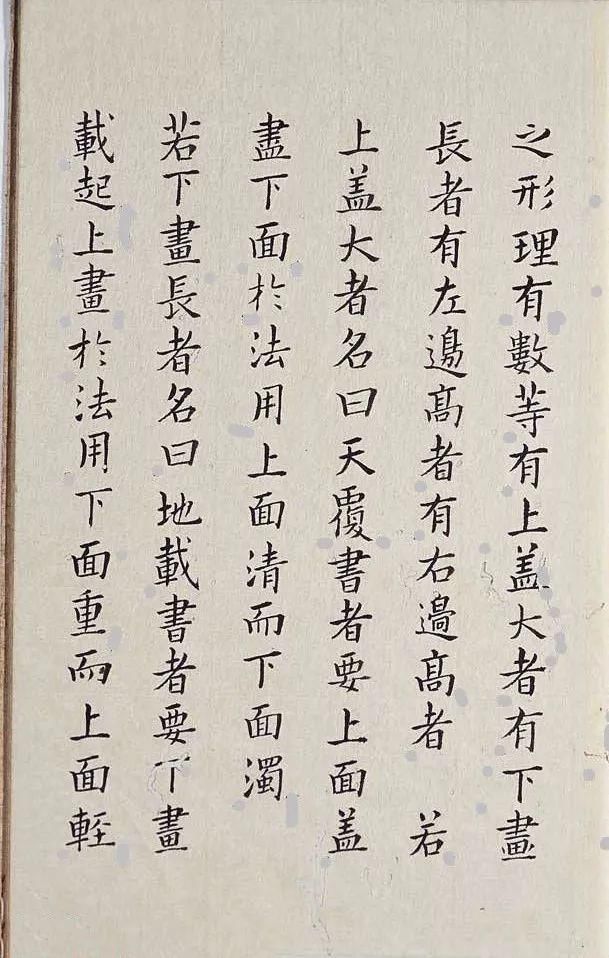 之形理有數等有上盖大者有下畫
長者有左邊高者有右邊高者 若
上盖大者名曰天覆書者要上面盖
盡下面於法用上面清而下面濁
若下畫長者名曰地載書者要下畫
載起上畫於法用下面重而上面輕